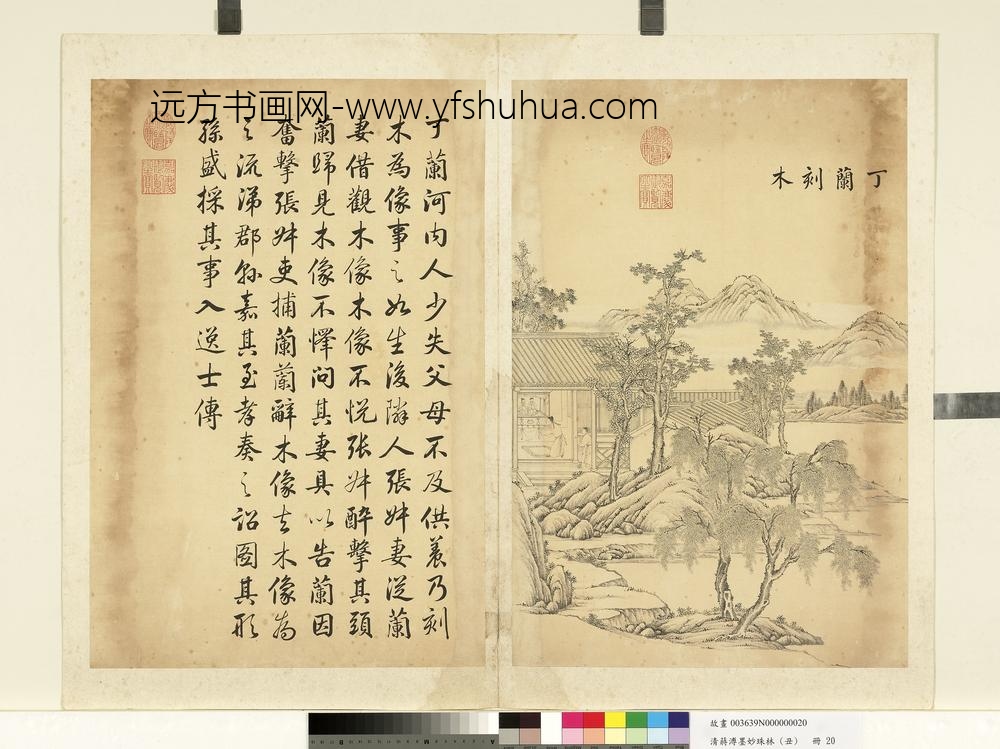 远方书画网-www.yfshuhua.com
丁蘭刻木
丁蘭河內人少失父母不及供養乃刻
木為像事之如生後隣人張叔妻從蘭
妻借觀木像木像不悅張叔醉擊其頭
蘭歸見木像不懌問其妻具以告蘭因
奮擊張叔吏捕蘭蘭辭木像去木像為
之流涕郡縣嘉其至孝奏之詔圖其形
孫盛採其事入逸士傳
故畫 003639N000000020
清蔣溥墨妙珠林（丑） 冊 20